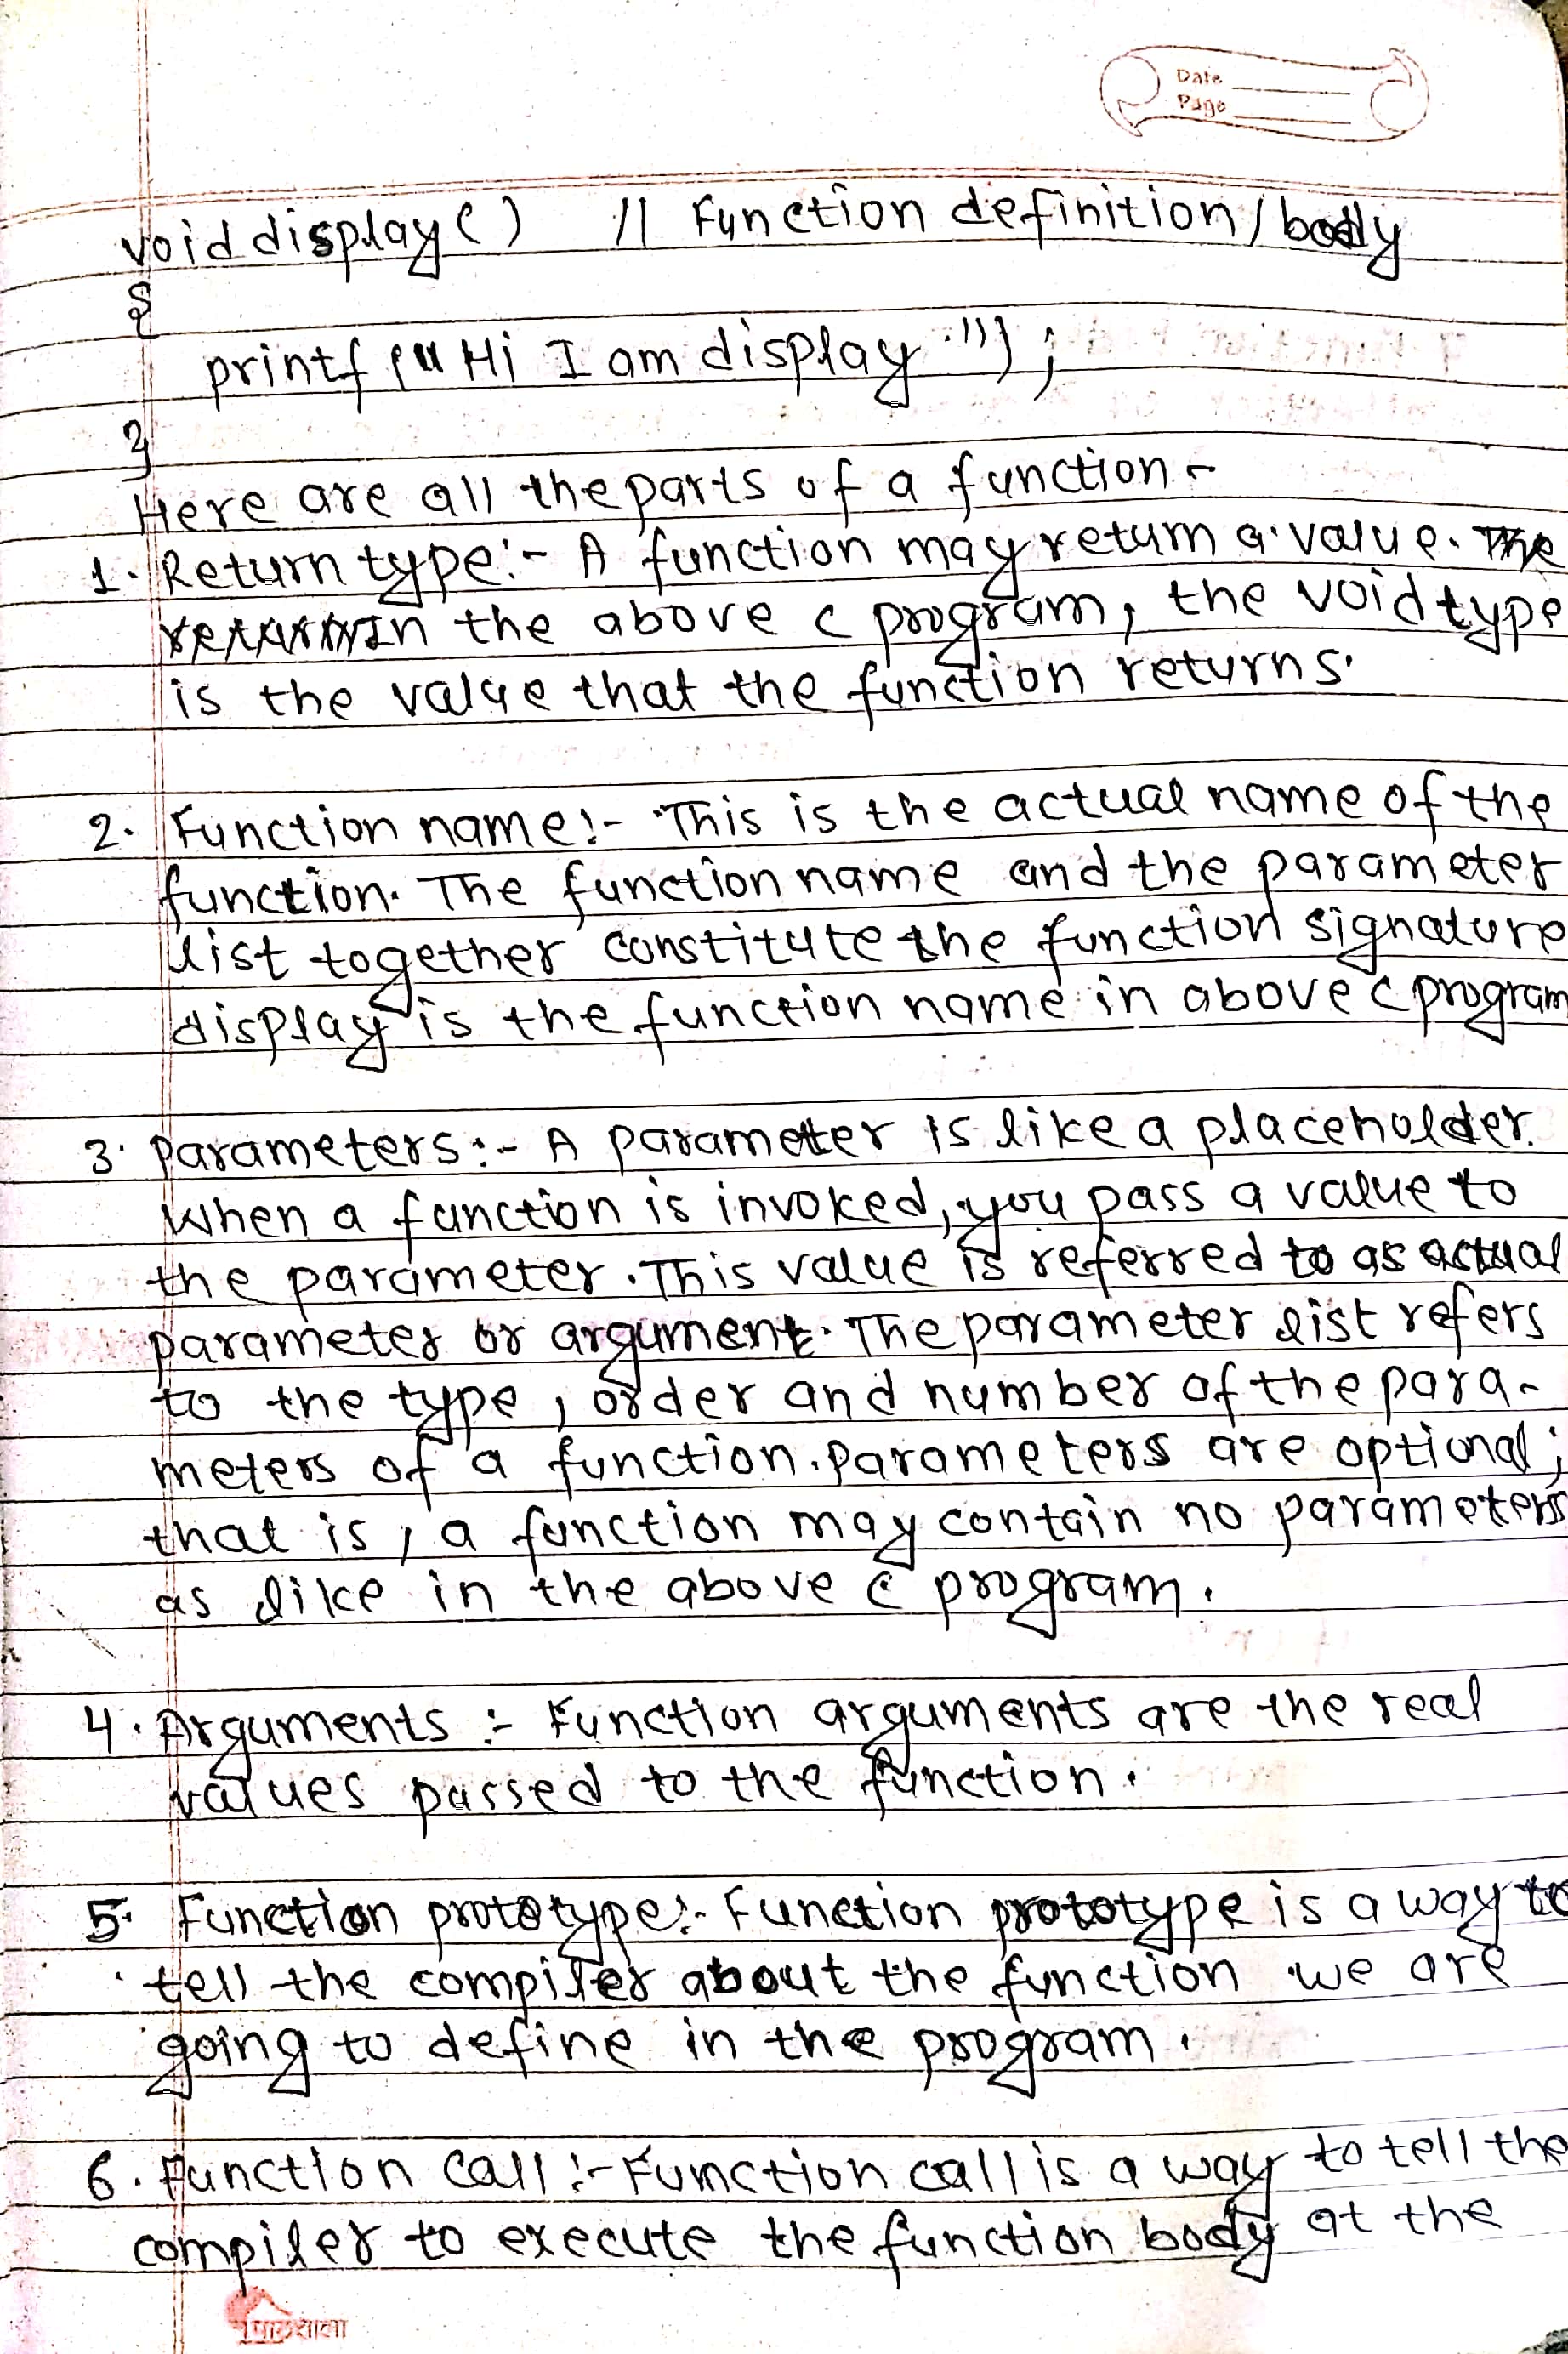 Date
Page
void display() // Function definition / body
{
printf("Hi I am display.");
}
Here are all the parts of a function -
1. Return type:- A function may return a value. The
In the above c program, the void type
is the value that the function returns.
2. Function name:- This is the actual name of the
function. The function name and the parameter
list together constitute the function signature
display is the function name in above c program
3. parameters:- A parameter is like a placeholder.
When a function is invoked, you pass a value to
the parameter. This value is referred to as actual
parameter or argument. The parameter list refers
to the type, order and number of the para-
meters of a function. parameters are optional;
that is, a function may contain no parameters
as like in the above c program.
4. Arguments :- Function arguments are the real
values passed to the function.
5. Function prototype:- Function prototype is a way to
tell the compiler about the function we are
going to define in the program.
6. Function call:- Function call is a way to tell the
compiler to execute the function body at the
पाठशाला